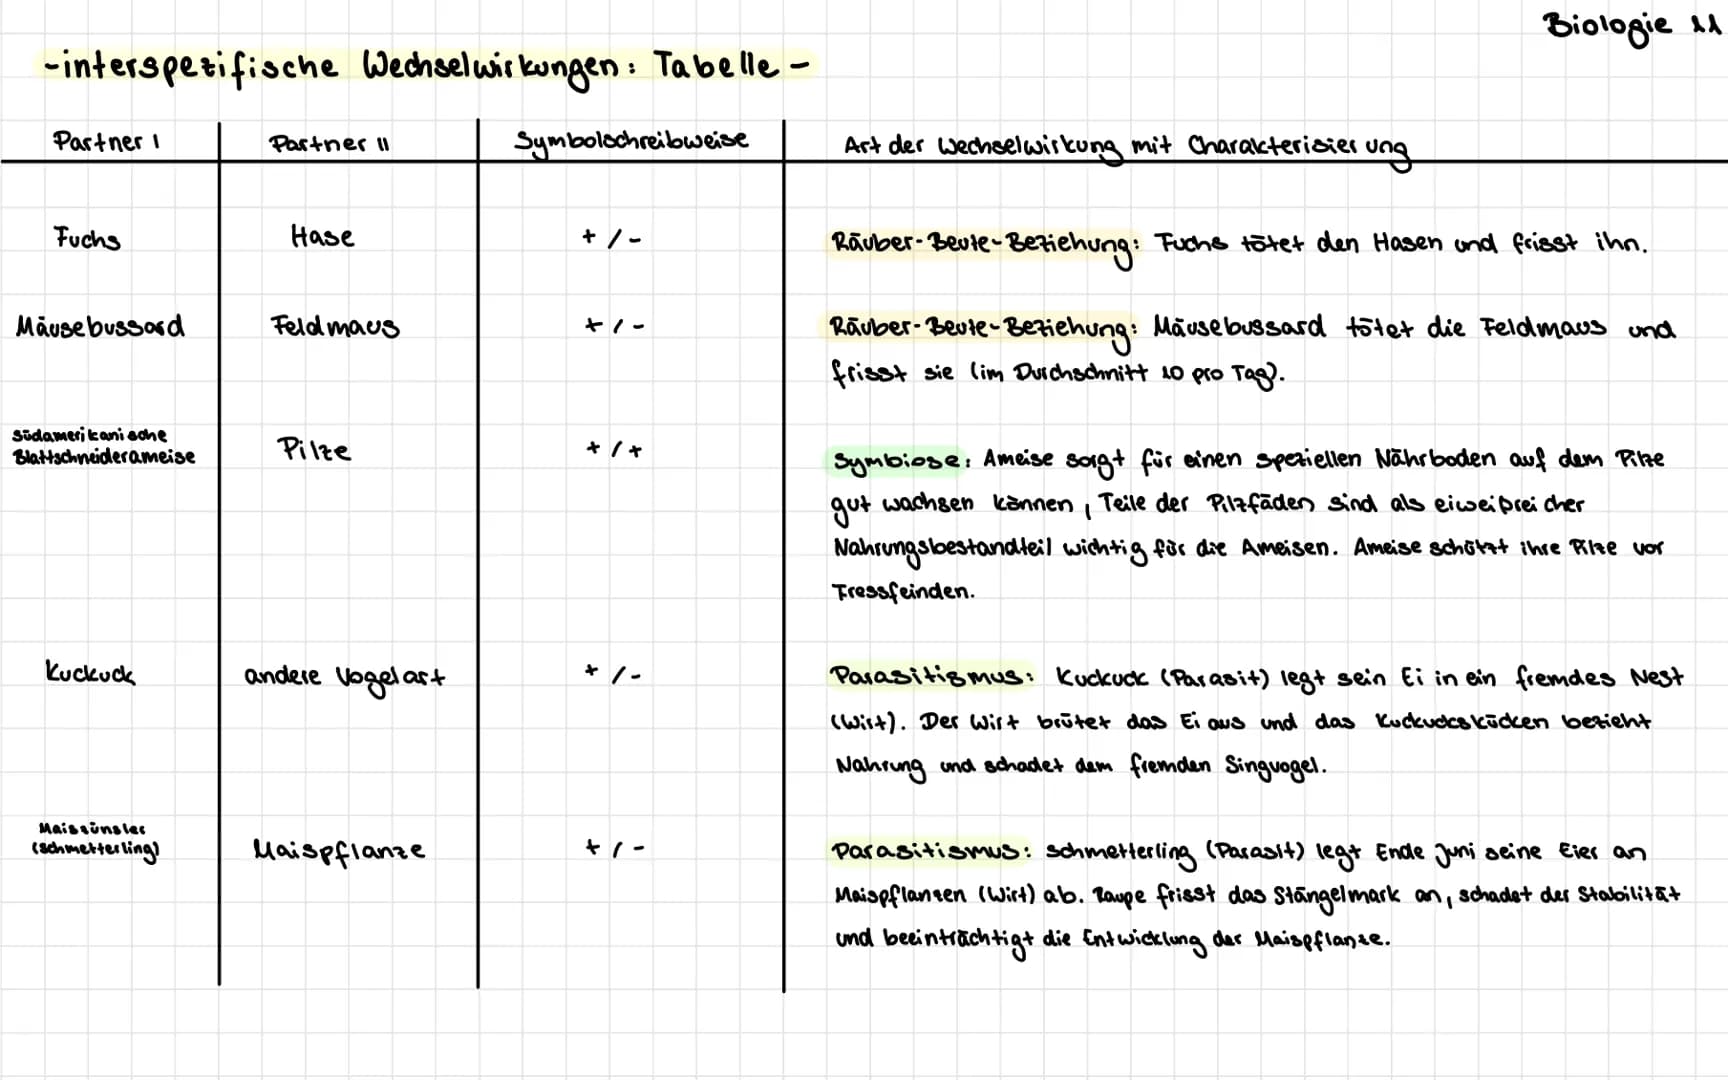 Biologie 11
-interspezifische Wechselwirkungen: Tabelle-
Partner I
Partner II
Symbolschreibweise
Art der Wechselwirkung mit Charakterisierung
Fuchs
Hase
+/-
Räuber-Beute-Beziehung: Fuchs tötet den Hasen und frisst ihn.
Mäusebussard
Feldmaus
+/-
Räuber-Beute-Beziehung: Mäusebussard tötet die Feldmaus und
frisst sie (im Durchschnitt 10 pro Tag).
Südamerikanische
Blattschneiderameise
Pilze
+/+
Symbiose: Ameise sorgt für einen speziellen Nährboden auf dem Pilze
gut wachsen können, Teile der Pilzfäden sind als eiweißreicher
Nahrungsbestandteil wichtig für die Ameisen. Ameise schützt ihre Pilze vor
Fressfeinden.
Kuckuck
andere Vogelart
+/-
Parasitismus: Kuckuck (Parasit) legt sein Ei in ein fremdes Nest
(Wirt). Der Wirt brütet das Ei aus und das Kuckuckskücken bezieht
Nahrung und schadet dem fremden Singvogel.
Maiszünsler
(Schmetterling)
Maispflanze
+/-
Parasitismus: Schmetterling (Parasit) legt Ende Juni seine Eier an
Maispflanzen (Wirt) ab. Raupe frisst das Stängelmark an, schadet der Stabilität
und beeinträchtigt die Entwicklung der Maispflanze.